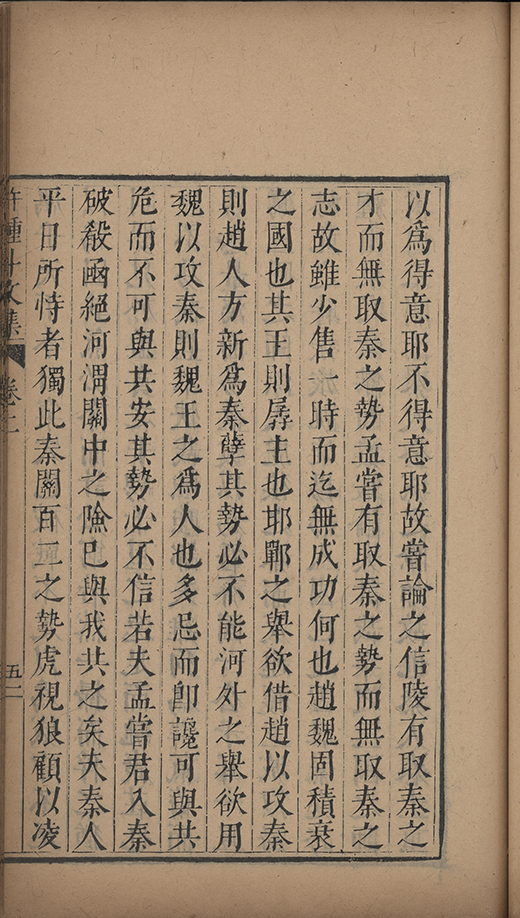 以爲得意耶不得意耶故嘗論之信陵有取秦之
才而無取秦之勢孟嘗有取秦之勢而無取秦之
志故雖少售一時而迄無成功何也趙魏固積衰
之國也其王則孱主也邯鄲之舉欲借趙以攻秦
則趙人方新爲秦孽其勢必不能河外之舉欲用
魏以攻秦則魏王之爲人也多忌而卽讒可與共
危而不可與共安其勢必不信若夫孟嘗君入秦
破殽函絕河渭關中之險已與我共之矣夫秦人
平日所恃者獨此秦關百二之勢虎視狼顧以凌
許鍾斗文集 卷二 五二